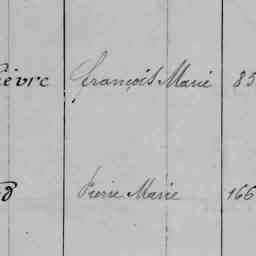 èvre François Marie 85
d Pierre Marie 166